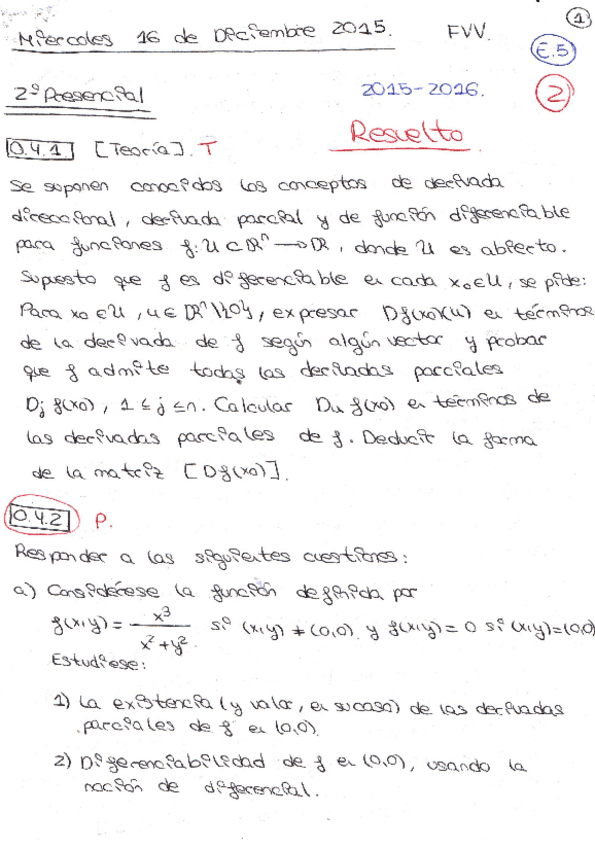 1
Miercoles 16 de Diciembre 2015. FVV.
E.5
2º Presencial 2015-2016. 2
Resuelto
0.4.1 [Teoría]. T
Se suponen conocidos los conceptos de derivada
direccional, derivada parcial y de función diferenciable
para funciones f: U ⊂ ℝⁿ → ℝ, donde U es abierto.
Supuesto que f es diferenciable en cada x₀ ∈ U, se pide:
Para x₀ ∈ U, u ∈ ℝⁿ\{0}, expresar Df(x₀)(u) en términos
de la derivada de f según algún vector y probar
que f admite todas las derivadas parciales
Dj f(x₀), 1 ≤ j ≤ n. Calcular Du f(x₀) en términos de
las derivadas parciales de f. Deducir la forma
de la matriz [Df(x₀)].
0.4.2 P.
Responder a las siguientes cuestiones:
a) Considérese la función definida por
f(x,y) = x³/(x²+y²) si (x,y) ≠ (0,0) y f(x,y) = 0 si (x,y)=(0,0)
Estúdiese:
1) La existencia (y valor, en su caso) de las derivadas
parciales de f en (0,0).
2) Diferenciabilidad de f en (0,0), usando la
noción de diferencial.